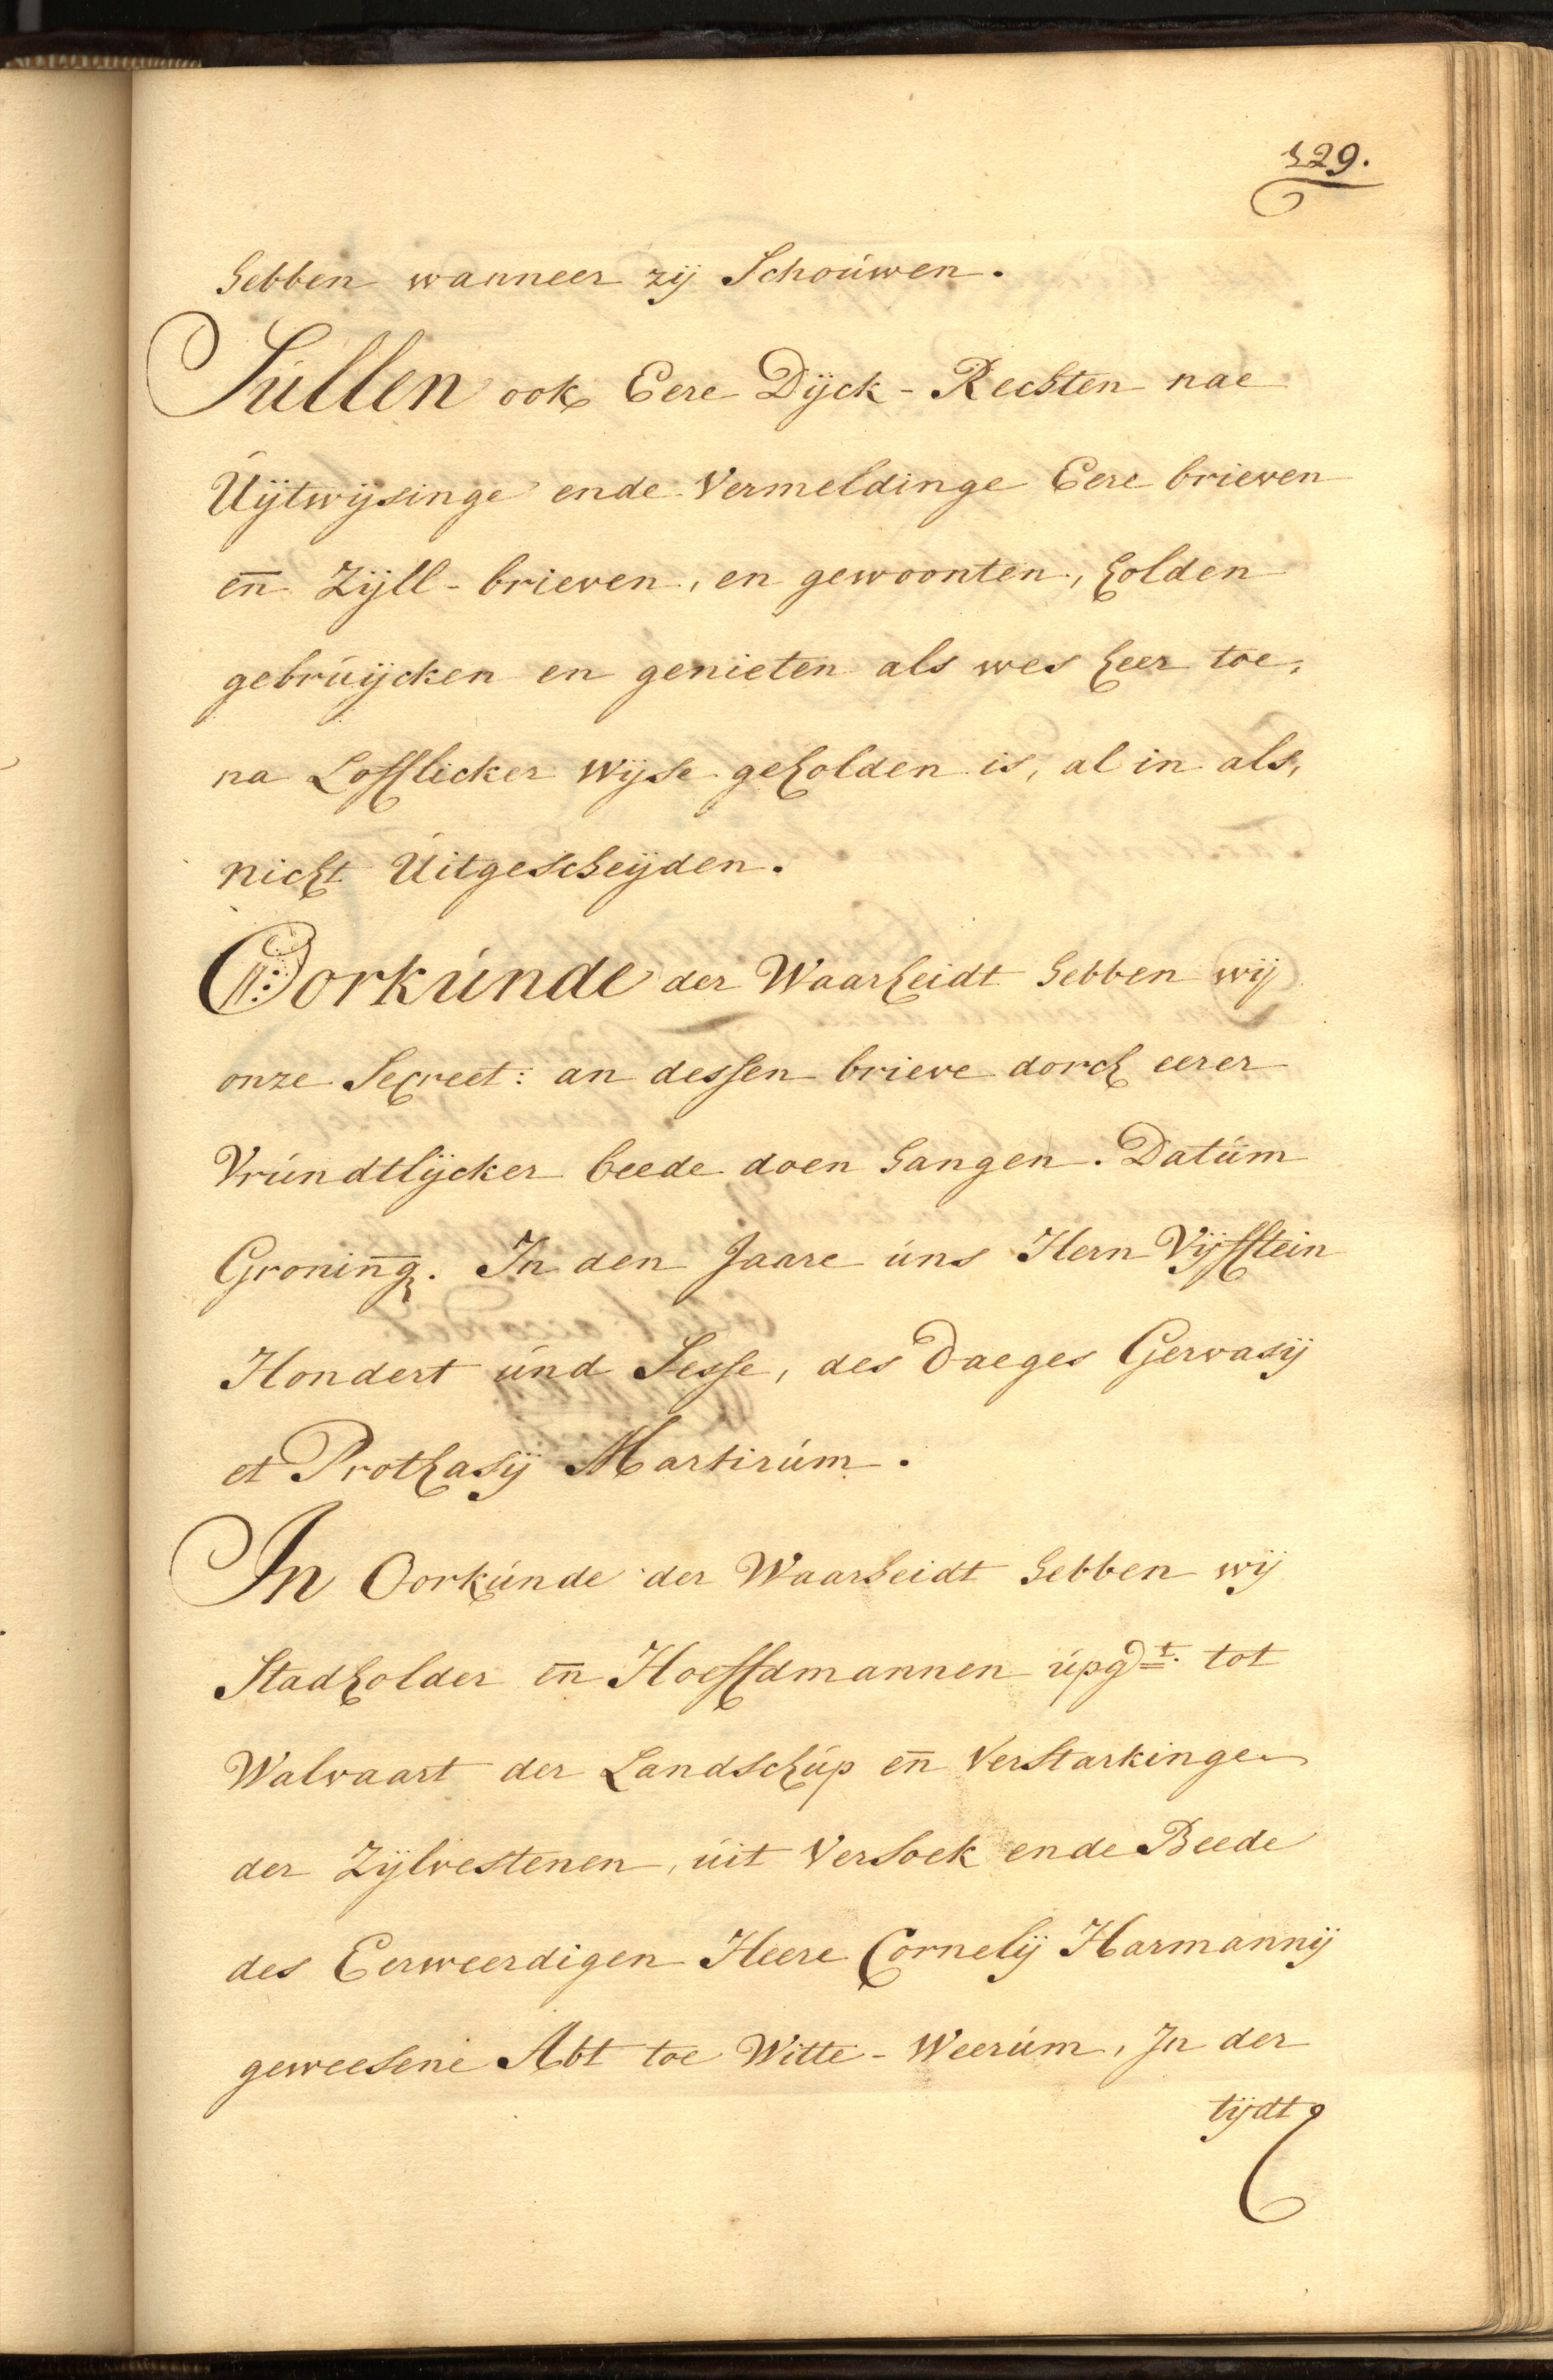 129.
hebben wanneer zij Schoúwen.
Súllen ook Eere Dijck-Rechten nae
Úijtwijsinge ende Vermeldinge Eere brieven
en̄ Zijll-brieven, en gewoonten, holden
gebrúijcken en genieten als wes heer toe,
na Lofflicker wijse geholden is, al in als,
nicht Úitgescheijden.
Oorkúnde der Waarheidt hebben wij
onze Secreet: an dessen brieve dorch eerer
Vrúndtlijcker beede doen hangen. Datúm
Gronin̄g. In den Jaare úns Hern Vijfftein
Hondert únd Sesse, des Daeges Gervasij
et Prothasij Martirúm.
In Oorkúnde der Waarheidt hebben wij
Stadholder en̄ Hoeffdmannen úpgt. tot
Walvaart der Landschúp en̄ Verstarkinge
der Zijlvestenen, úit Versoek ende Beede
des Eerweerdigen Heere Cornelij Harmannij
geweesene Abt toe Witte-Weerúm, In der
tijdt